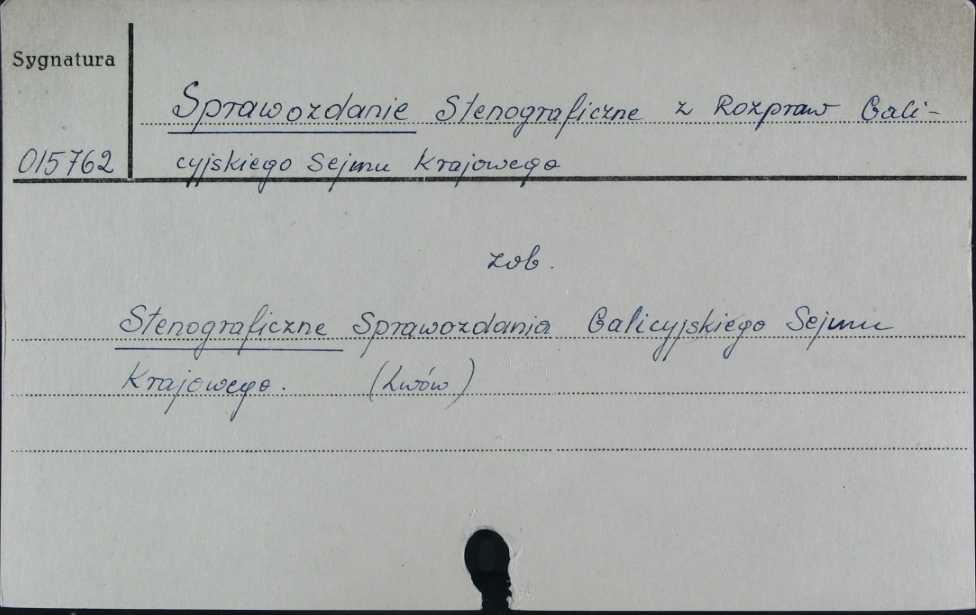 Sygnatura
Sprawozdanie Stenograficzne z Rozpraw Gali-
015762 cyjskiego Sejmu Krajowego
zob.
Stenograficzne Sprawozdania Galicyjskiego Sejmu
Krajowego. (Lwów)